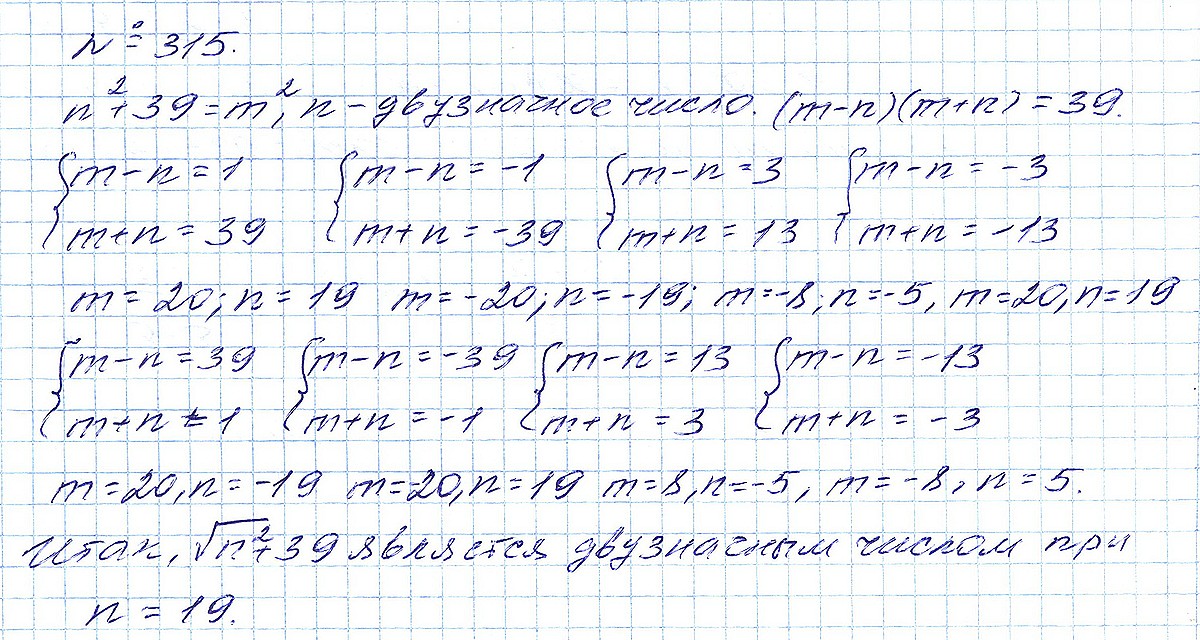 № 315.
n² + 39 = m², n – двузначное число. (m-n)(m+n) = 39.
{m-n=1 {m-n=-1 {m-n=3 {m-n=-3
{m+n=39 {m+n=-39 {m+n=13 {m+n=-13
m=20; n=19 m=-20; n=-19; m=-8; n=-5, m=20, n=19
{m-n=39 {m-n=-39 {m-n=13 {m-n=-13
{m+n=1 {m+n=-1 {m+n=3 {m+n=-3
m=20, n=-19 m=20, n=19 m=8, n=-5, m=-8, n=5.
Итак, √n²+39 является двузначным числом при
n = 19.